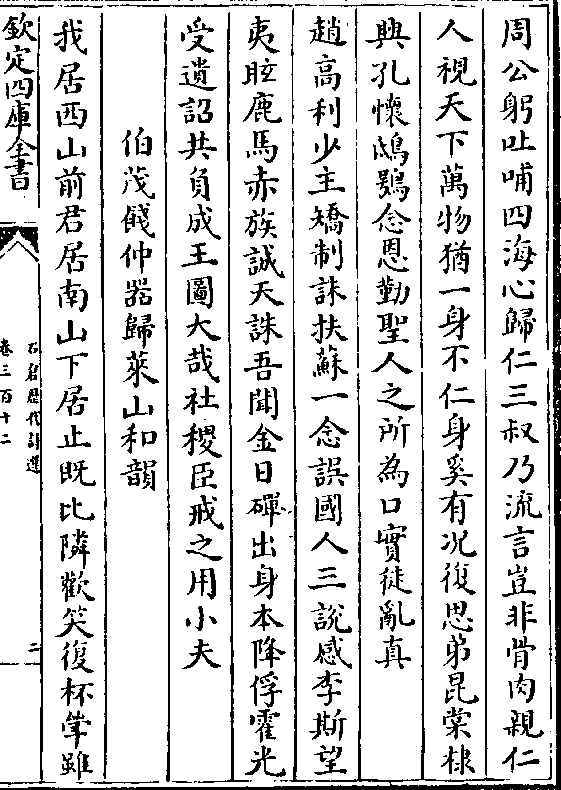 周公躬吐哺四海心歸仁三叔乃流言豈非骨肉親仁
人視天下萬物猶一身不仁身奚有况復思弟昆棠棣
興孔懷鴟鴞念恩勤聖人之所為口實徒亂真
趙高利少主矯制誅扶蘇一念誤國人三說惑李斯望
夷眩鹿馬赤族誠天誅吾聞金日磾出身本降俘霍光
受遺詔共負成王圖大哉社稷臣戒之用小夫
伯茂餞仲器歸萊山和韻
我居西山前君居南山下居止既比隣歡笑復杯斝雖
欽定四庫全書
石倉歴代詩選
卷三百十二
二